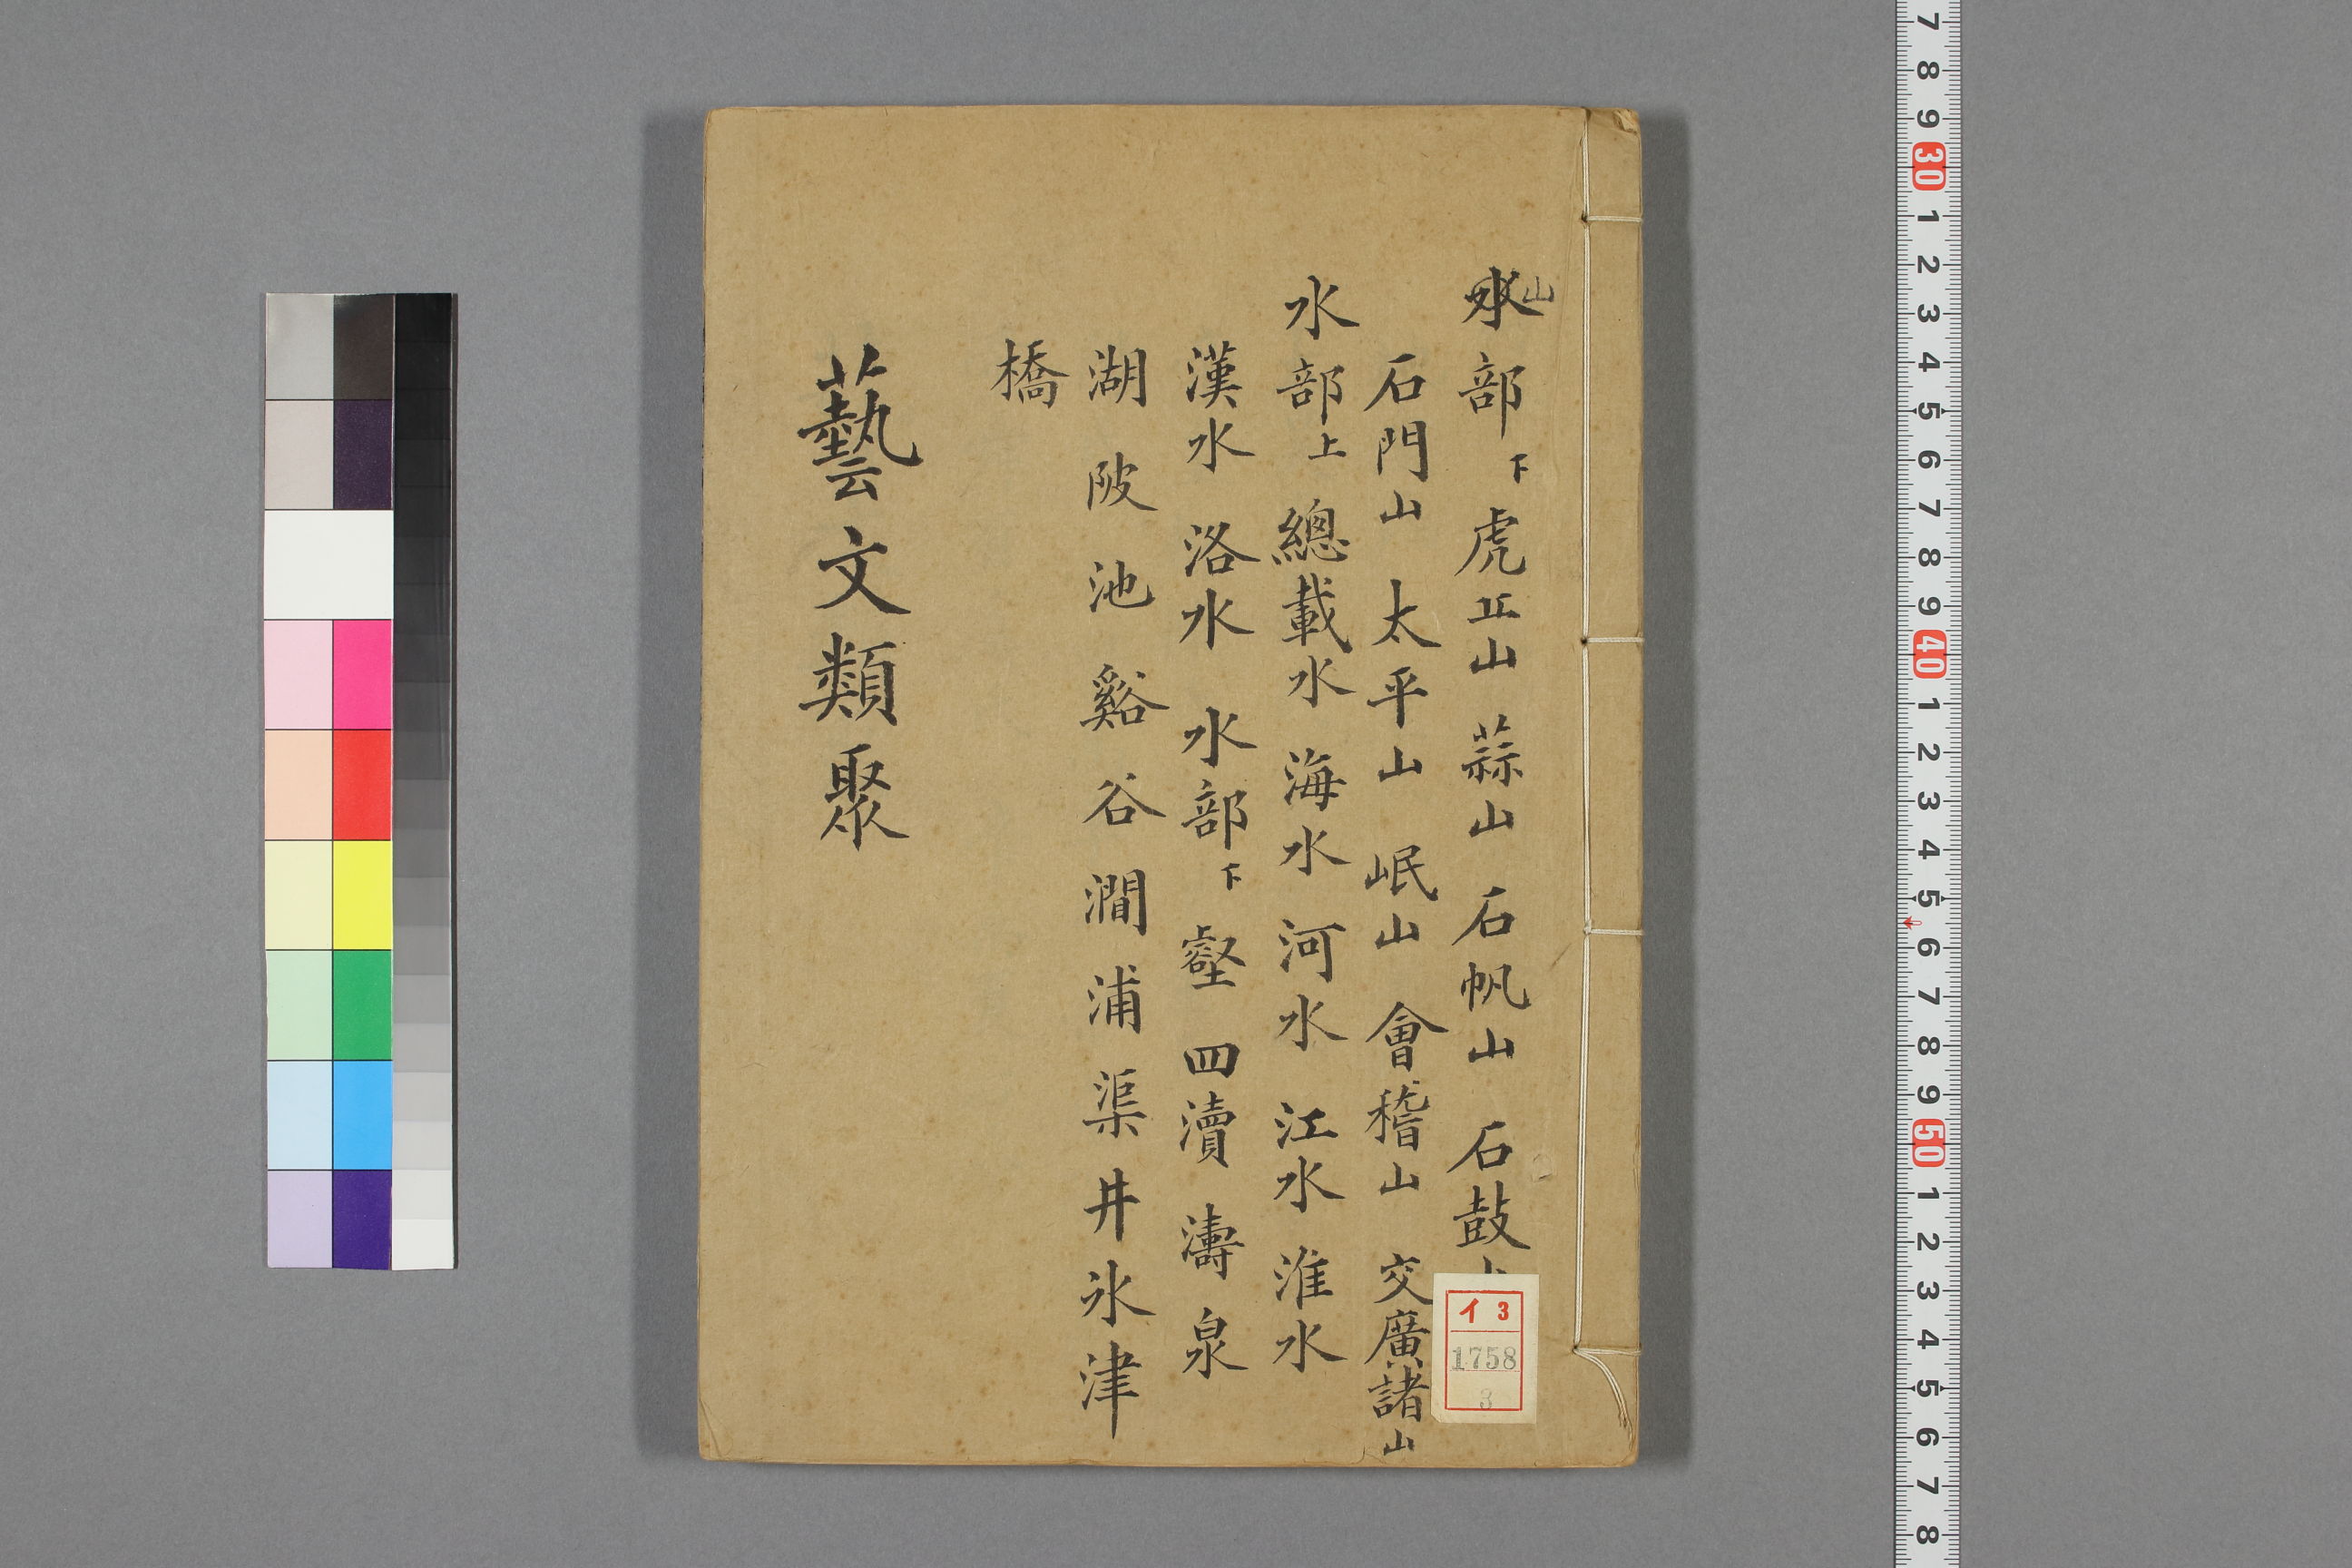 山
水部下 虎丘山 蒜山 石帆山 石鼓
石門山 太平山 岷山 會稽山 交廣諸山
水部上 總載水 海水 河水 江水 淮水
漢水 洛水 水部下 壑 四瀆 濤 泉
湖 陂 池 谿 谷 澗 浦 渠 井 氷 津
橋
藝文類聚
イ 3
1758
3
7 8 9 30 1 2 3 4 5 6 7 8 9 40 1 2 3 4 5 6 7 8 9 50 1 2 3 4 5 6 7 8